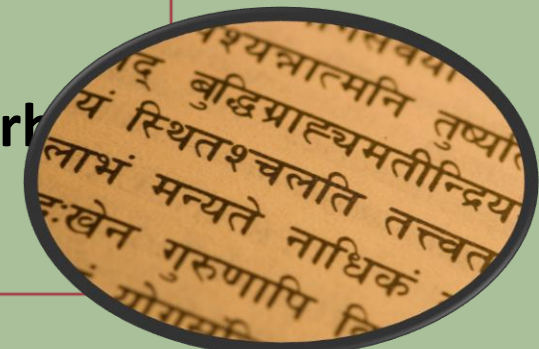 rh
श्यन्नात्मनि तुष्यति
द् बुद्धिग्राह्यमतीन्द्रिय
यं स्थितश्चलति तत्त्वत
लाभं मन्यते नाधिकं
ःखेन गुरुणापि वि